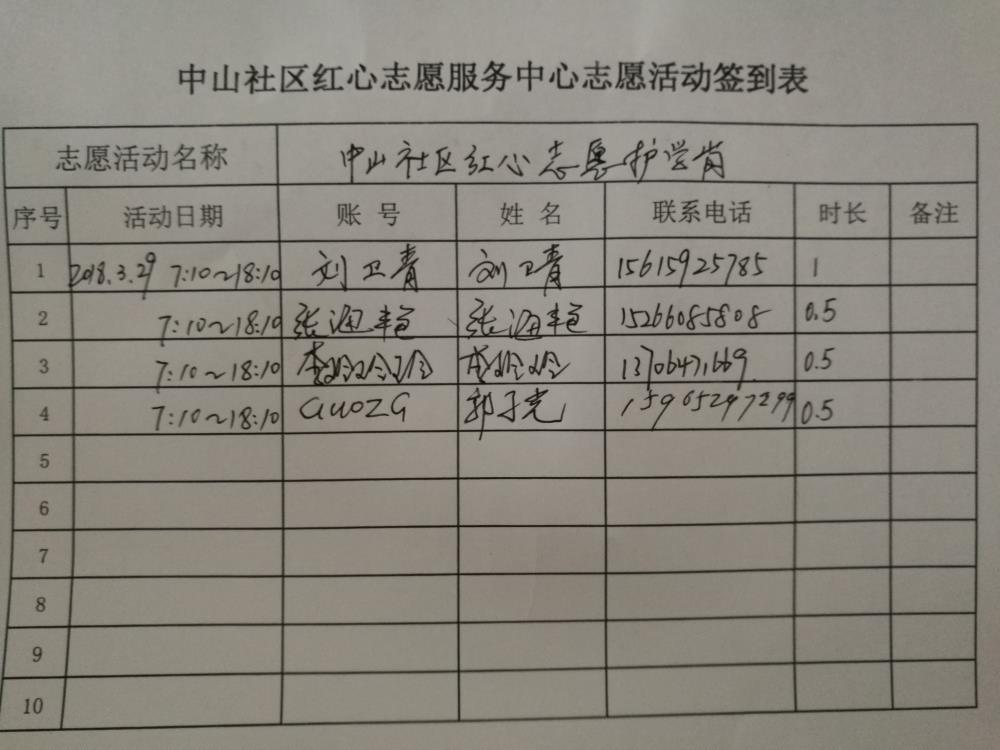 中山社区红心志愿服务中心志愿活动签到表
志愿活动名称 中山社区红心志愿护学岗
序号 活动日期 账号 姓名 联系电话 时长 备注
1 2018.3.29 7:10~18:10 刘卫青 刘卫青 15615925785 1
2 7:10~18:10 张海艳 张海艳 15266085808 0.5
3 7:10~18:10 李玲玲玲 李玲玲 13706471669 0.5
4 7:10~18:10 GUOZG 郭子光 15965297299 0.5
5
6
7
8
9
10